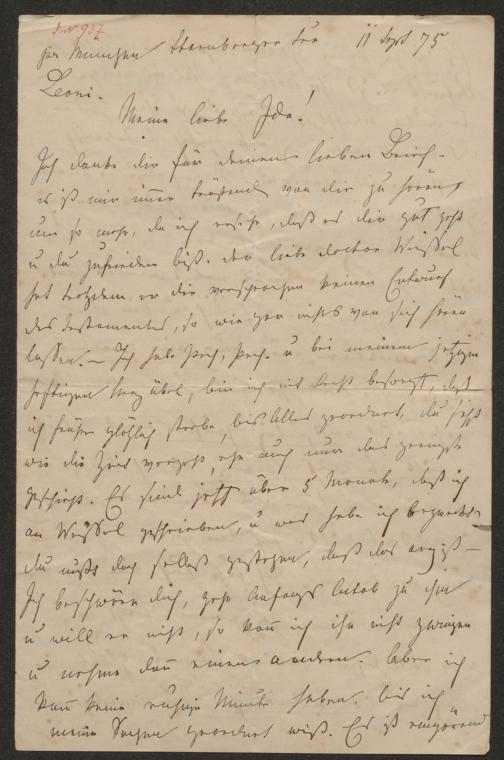 I.N. 937
per München Starnberger See 11 Sept 75
Leoni.
Meine liebe Ida!
Ich danke dir für deinen lieben Brief –
es ist mir immer tröstend von dir zu hören,
um so mehr, da ich ersehe, daß es dir gut geht
u du zufrieden bist. der liebe doctor Weissel
hat trotzdem er dir versprochen keinen Entwurf
des Testamentes, so wie gar nichts von sich hören
lassen. – Ich habe Pech, Pech. u bei meinem jetzigen
heftigen Herzübel, bin ich mit Recht besorgt, daß
ich früher plötzlich sterbe, bis Alles geordnet, du siehst
wie die Zeit vergeht, ehe auch nur das geringste
geschieht. Es sind jetzt über 5 Monate, daß ich
an Weissel geschrieben, u was habe ich bezweckt
du mußt doch selbst gestehen, daß das arg ist –
Ich beschwöre dich, gehe Anfangs Octob zu ihm
u will er nicht, so kann ich ihn nicht zwingen
u nehme dann einen anderen. Aber ich
kann keine ruhige Minute haben bis ich
meine Sachen geordnet weiß. Es ist empörend